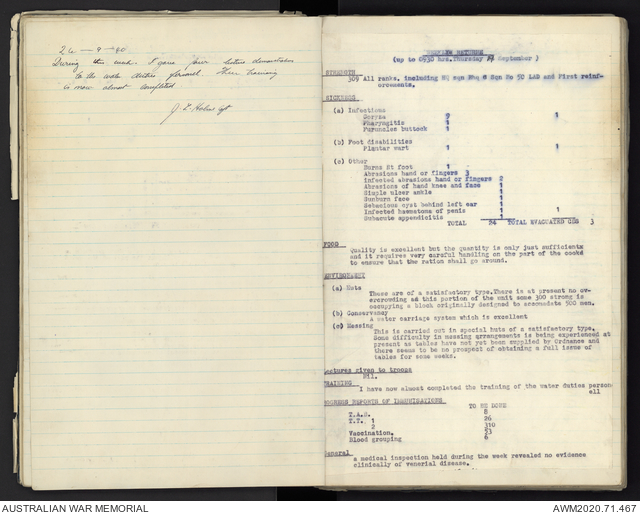 26 – 9 – 40
During this week I gave four lectures demonstrations
to the water duties personnel Their training
is now almost completed
WEEKLY RETURNS
(up to 0930 hrs. Thursday September)
STRENGTH
309 All ranks. including Hq sqn No 50 LAD and First reinf-
orcements.
SICKNESS
(a) Infections
Coryza 9 1
Pharyngitis 1
Furuncles buttock 1
(b) Foot disabilities
Plantar wart 1 1
(c) Other
Burns Rt foot 1
Abrasions hand or fingers 3
Infected abrasions hand or fingers 2
Abrasions of hand knee and face 1
Simple ulcer ankle 1
Sunburn face 1
Sebacious cyst behind left ear 1
Infected haematoma of penis 1 1
Subacute appendicitis 1
TOTAL 24 TOTAL EVACUATED CCS 3
FOOD
Quality is excellent but the quantity is only just sufficient
and it requires very careful handling on the part of the cooks
to ensure that the ration shall go around.
ENVIRONMENT
(a) Huts
These are of a satisfactory type.There is at present no ov-
ercrowding as this portion of the unit some 300 strong is
occupying a block originally designed to accomodate 500 men.
(b) Conservancy
A water carriage system which is excellent
(c) Messing
This is carried out in special huts of a satisfactory type.
Some difficulty in messing arrangements is being experienced at
present as tables have not yet been supplied by Ordnance and
there seems to be no prospect of obtaining a full issue of
tables for some weeks.
Lectures given to troops
Nil.
TRAINING
I have now almost completed the training of the water duties person
ell
PROGRESS REPORTS OF IMMUNISATIONS TO BE DONE
T.A.B. 8
T.T. 1 26
2 310
Vaccination. 53
Blood grouping 6
General
a medical inspection held during the week revealed no evidence
clinically of venerial disease.
AUSTRALIAN WAR MEMORIAL
AWM2020.71.467